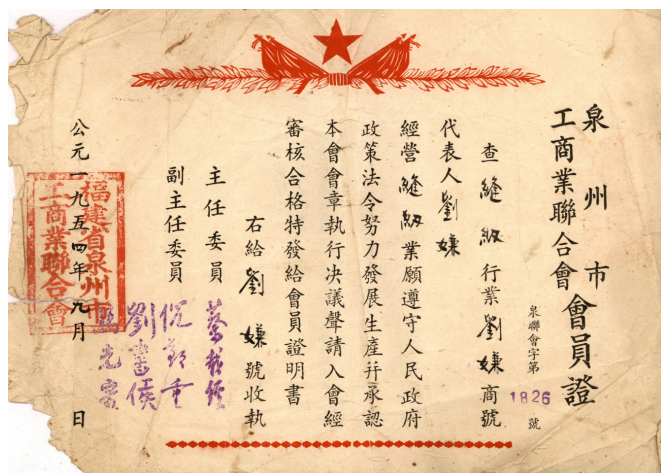 泉州市
工商業聯合會會員證
泉聯會字第1826號
查縫紉行業劉嫌商號
代表人劉嫌
經營縫紉業願遵守人民政府
政策法令努力發展生產幷承認
本會會章執行决議聲請入會經
審核合格特發給會員證明書
右給劉嫌號收執
主任委員蔡載經
副主任委員
公元一九五四年九月 日
福建省泉州市
工商業聯合會